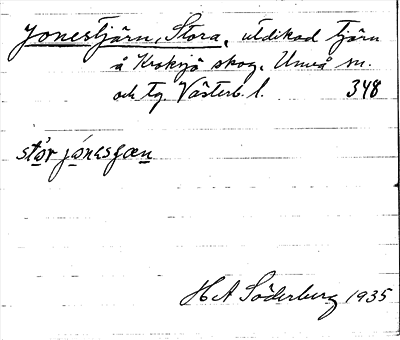 Jonestjärn, Stora, utdikad tjärn
å Kroksjö skog. Umeå sn.
och tg. Västerb. l. 348
stór jónasʃæn
H A Söderberg 1935